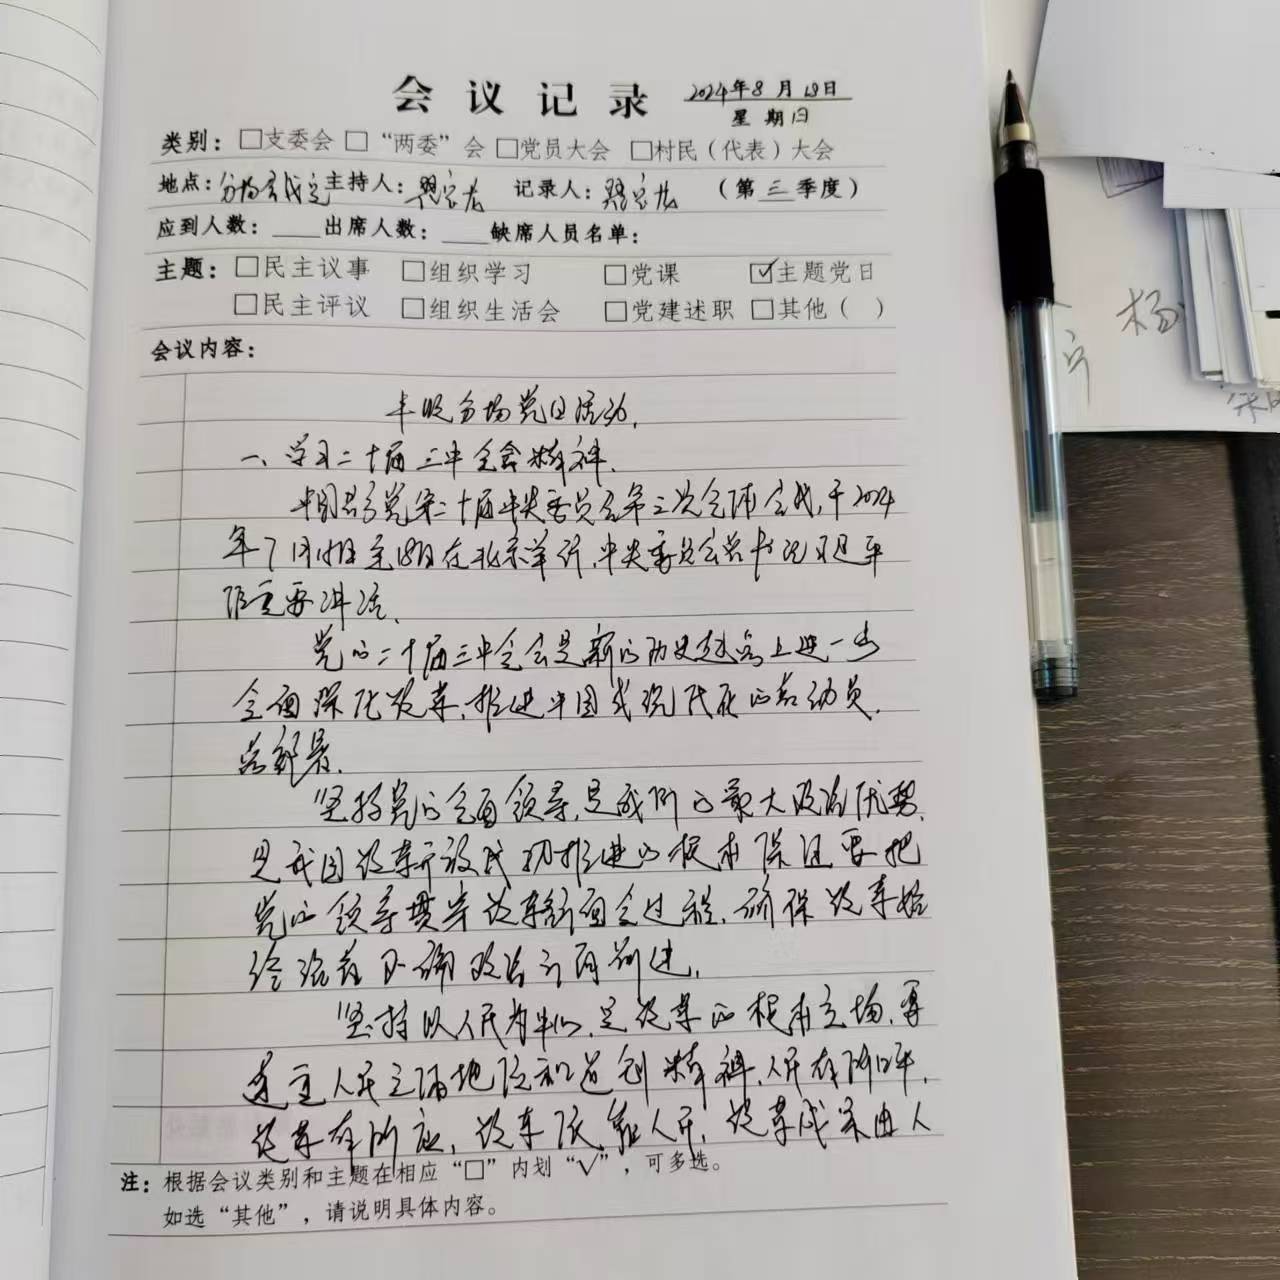 会议记录 2024年8月18日
星期日
类别：□支委会 □“两委”会 □党员大会 □村民（代表）大会
地点：分场会议室 主持人： 记录人： （第三季度）
应到人数：____出席人数：____缺席人员名单：
主题：□民主议事 □组织学习 □党课 ☑主题党日
□民主评议 □组织生活会 □党建述职 □其他（ ）
会议内容：
丰收分场党日活动.
一、学习二十届三中全会精神.
中国共产党第二十届中央委员会第三次全体会议,于2024
年7月15日至18日在北京举行.中央委员会总书记习近平
作重要讲话.
党的二十届三中全会是新的历史起点上进一步
全面深化改革、推进中国式现代化的总动员.
总部署.
坚持党的全面领导,是我们的最大政治优势.
是我国改革开放成功推进的根本保证要把
党的领导贯穿改革各方面全过程.确保改革始
终沿着正确政治方向前进.
坚持以人民为中心,是改革的根本立场.要
尊重人民主体地位和首创精神.人民有所呼.
改革有所应,改革依靠人民,改革成果由人
注：根据会议类别和主题在相应“□”内划“√”，可多选。
如选“其他”，请说明具体内容。
杨